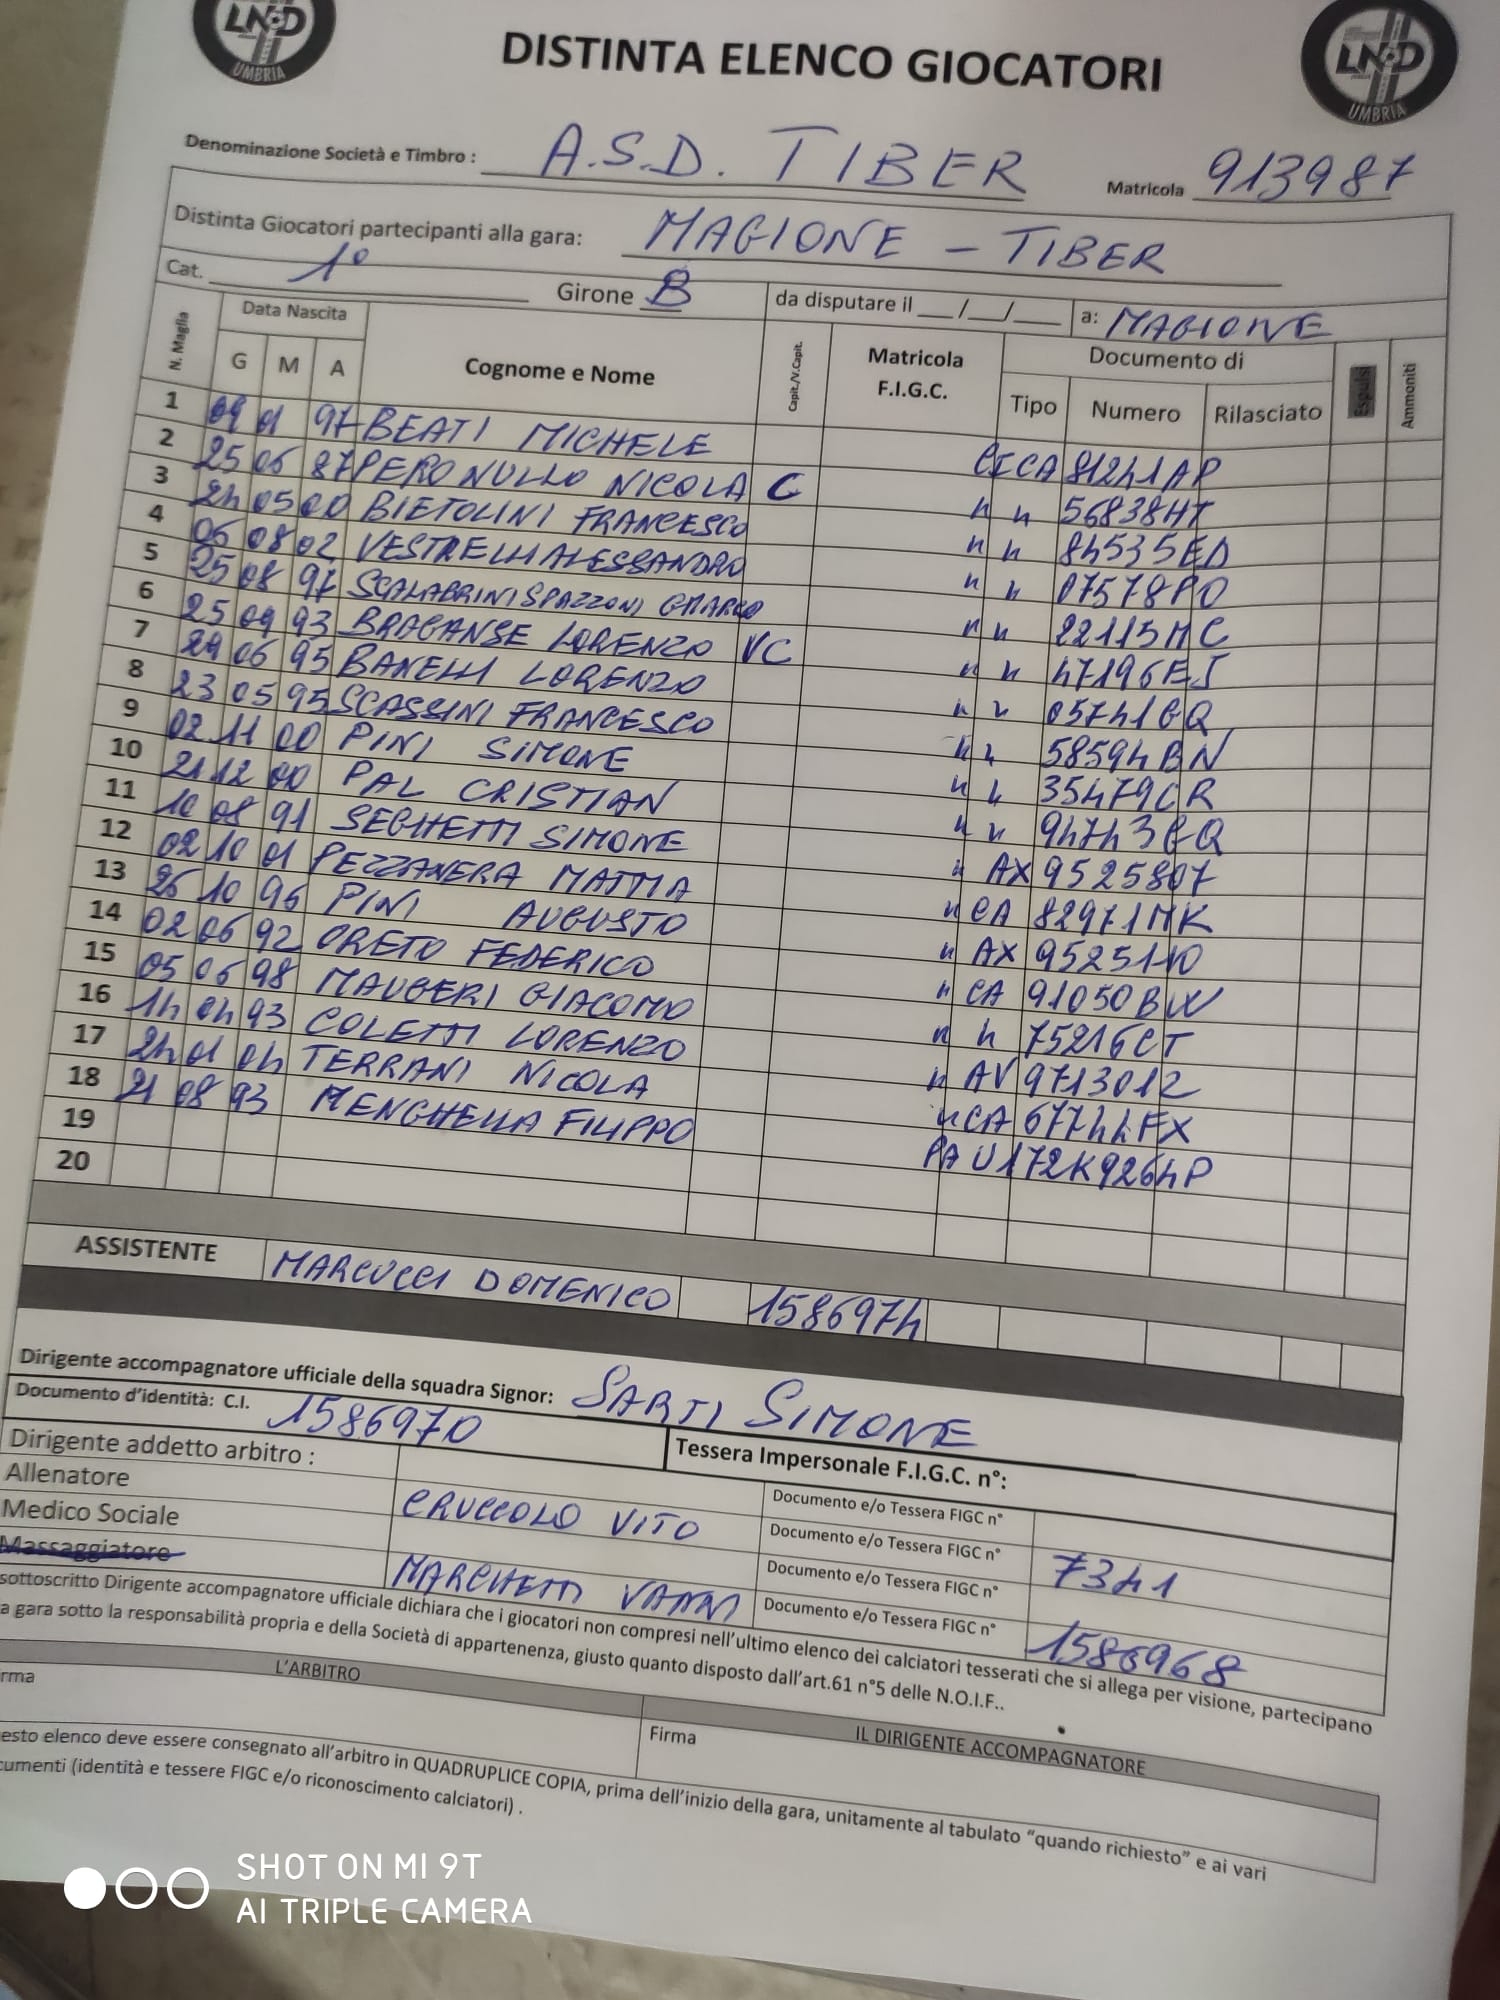 LND
UMBRIA
DISTINTA ELENCO GIOCATORI
LND
UMBRIA
Denominazione Società e Timbro : A.S.D. TIBER Matricola 913987
Distinta Giocatori partecipanti alla gara: MAGIONE - TIBER
Cat. 1° Girone B da disputare il __/__/__ a: MAGIONE
N. Maglia Data Nascita Cognome e Nome Capit./V.Capit. Matricola F.I.G.C. Documento di Espulsi Ammoniti
G M A Tipo Numero Rilasciato
1 09 01 97 BEATI MICHELE CI CA 81241AP
2 25 06 87 PERONULLO NICOLA C " " 56838HT
3 24 05 00 BIETOLINI FRANCESCO " " 84535ED
4 06 08 02 VESTRELLI ALESSANDRO " " 07578PO
5 25 08 97 SCALABRINI SPAZZONI GMARCO " " 22115MC
6 25 09 93 BRAGANSE LORENZO VC " " 47196EJ
7 29 06 95 BANELLI LORENZO " " 05741GQ
8 23 05 95 SCASSINI FRANCESCO " " 58594BN
9 02 11 00 PINI SIMONE " " 35479CR
10 21 12 00 PAL CRISTIAN " " 94743GQ
11 10 08 91 SEGHETTI SIMONE " AX 9525807
12 02 10 01 PEZZANERA MATTIA " CA 82971MK
13 26 10 96 PINI AUGUSTO " AX 9525110
14 02 06 92 ORETO FEDERICO " CA 91050BW
15 05 06 98 MAUGERI GIACOMO " " 75216CT
16 14 04 93 COLETTI LORENZO " AV 9713012
17 24 01 04 TERRANI NICOLA " CA 67744FX
18 21 08 93 MENGHELLA FILIPPO PA U172K9264P
19
20
ASSISTENTE MARCUCCI DOMENICO 1586974
Dirigente accompagnatore ufficiale della squadra Signor: SARTI SIMONE
Documento d'identità: C.I. 1586970 Tessera Impersonale F.I.G.C. n°:
Dirigente addetto arbitro : Documento e/o Tessera FIGC n°
Allenatore CRUCCOLO VITO Documento e/o Tessera FIGC n° 7341
Medico Sociale Documento e/o Tessera FIGC n°
Massaggiatore MARCHETTI VANNI Documento e/o Tessera FIGC n° 1586968
sottoscritto Dirigente accompagnatore ufficiale dichiara che i giocatori non compresi nell'ultimo elenco dei calciatori tesserati che si allega per visione, partecipano
a gara sotto la responsabilità propria e della Società di appartenenza, giusto quanto disposto dall'art.61 n°5 delle N.O.I.F..
L'ARBITRO IL DIRIGENTE ACCOMPAGNATORE
rma Firma
esto elenco deve essere consegnato all'arbitro in QUADRUPLICE COPIA, prima dell'inizio della gara, unitamente al tabulato "quando richiesto" e ai vari
cumenti (identità e tessere FIGC e/o riconoscimento calciatori) .
SHOT ON MI 9T
AI TRIPLE CAMERA